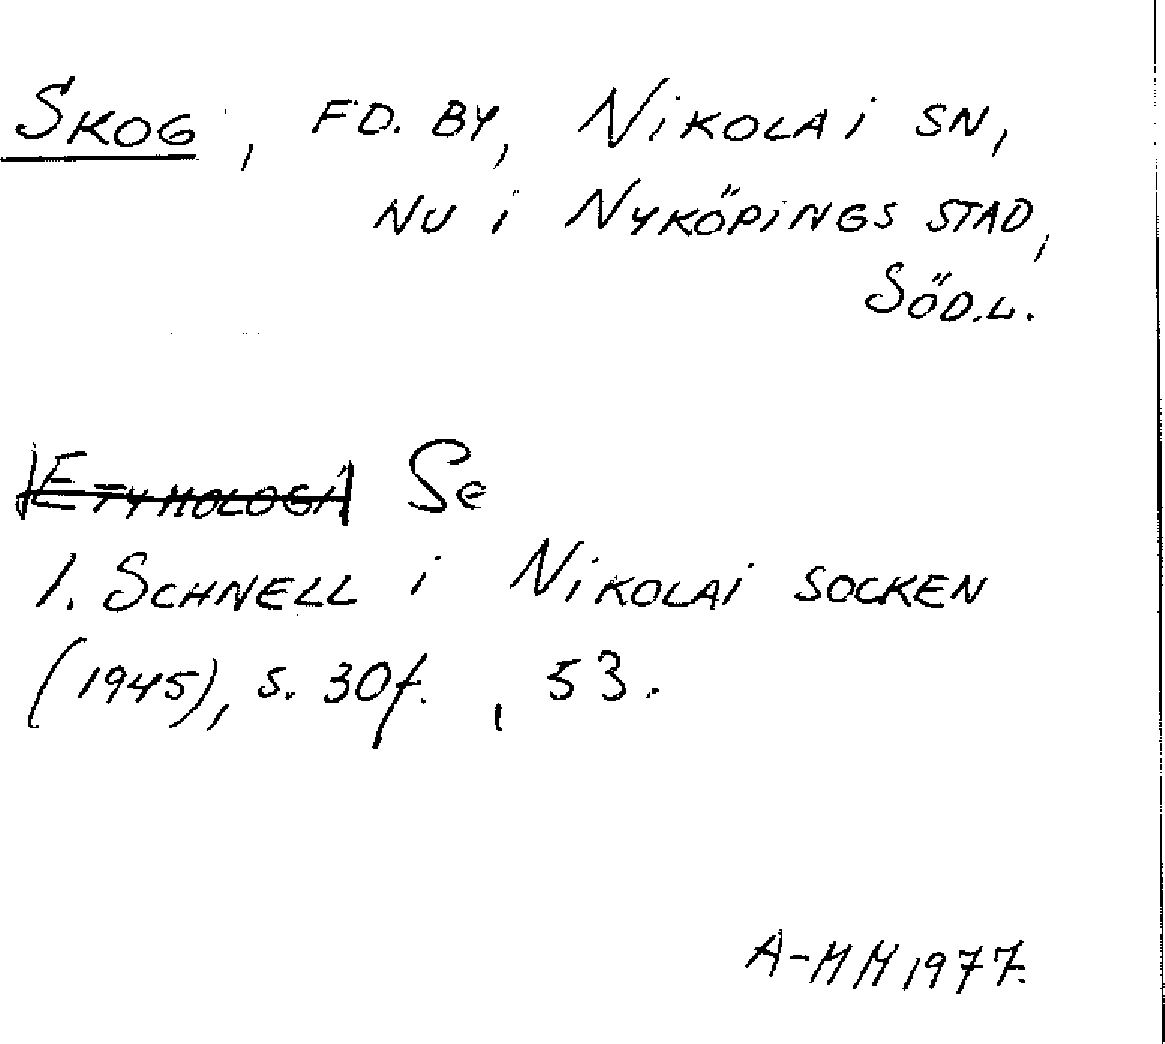 SKOG, FD. BY, NIKOLAI SN,
NU I NYKÖPINGS STAD,
SÖD.L.
ETYMOLOGI Se
I. SCHNELL I NIKOLAI SOCKEN
(1945), S. 30f., 53.
A-MM 1977.